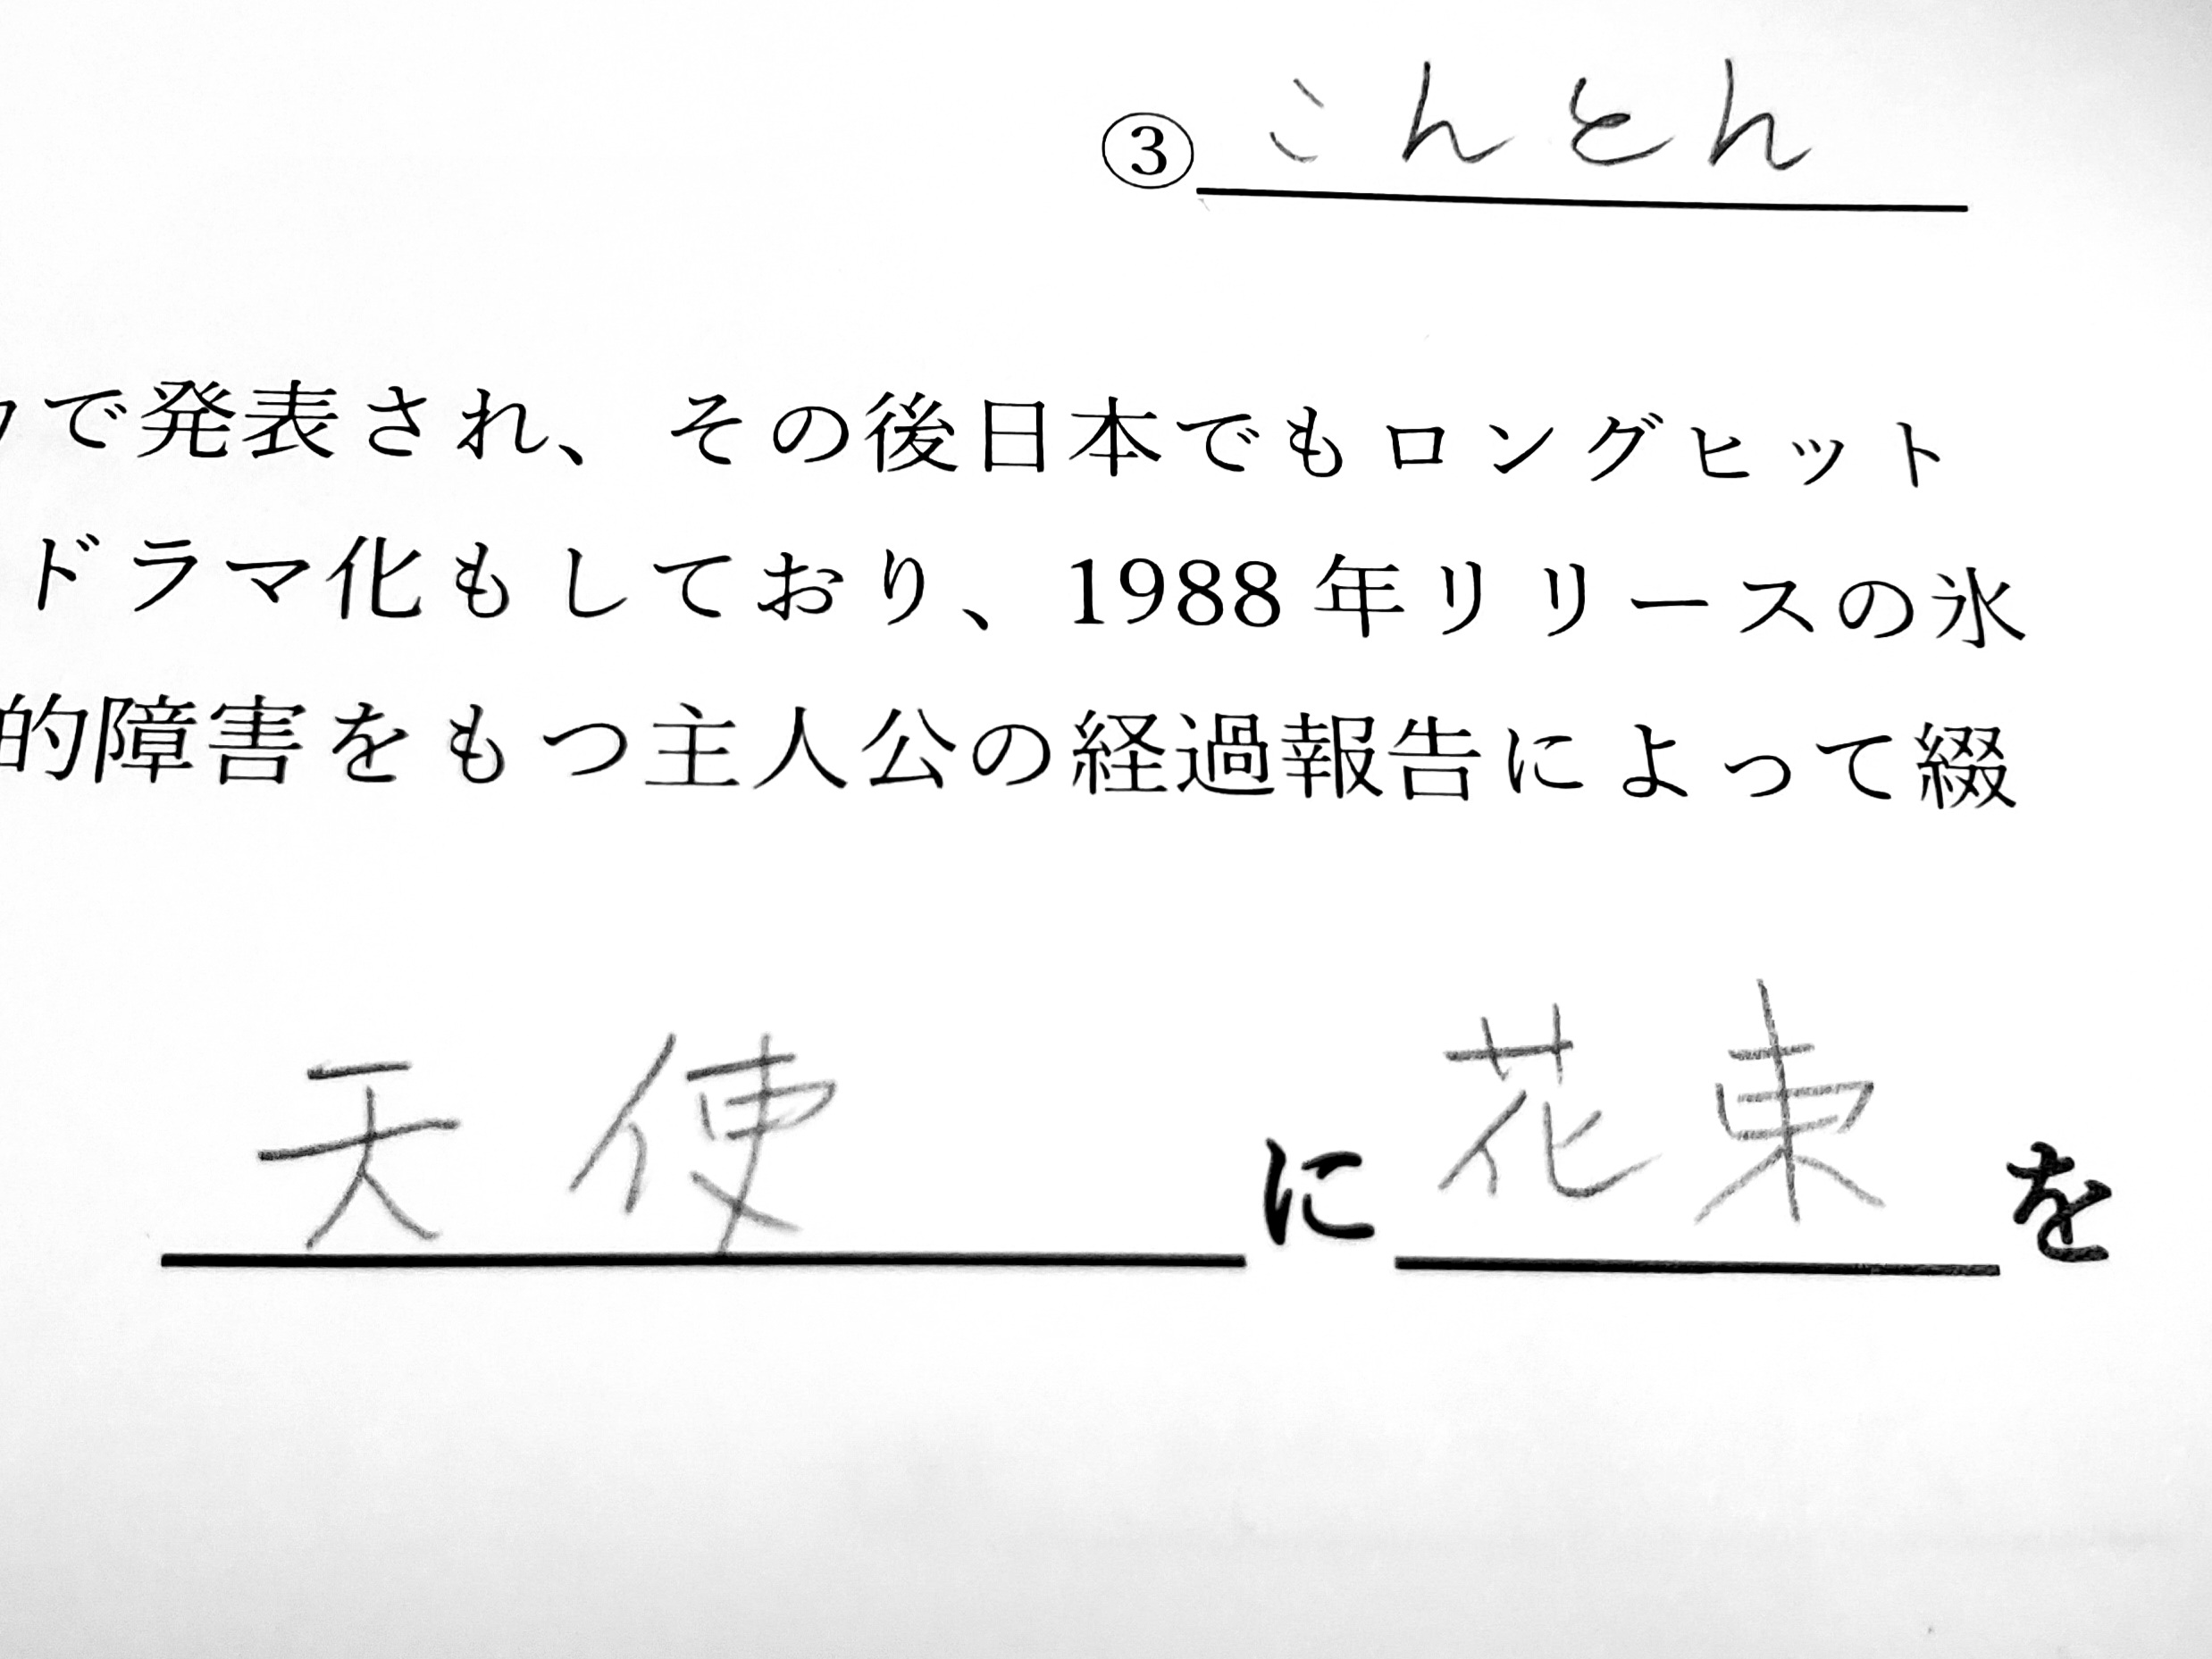 ③こんとん
で発表され、その後日本でもロングヒット
ドラマ化もしており、1988年リリースの氷
的障害をもつ主人公の経過報告によって綴
天使に花束を